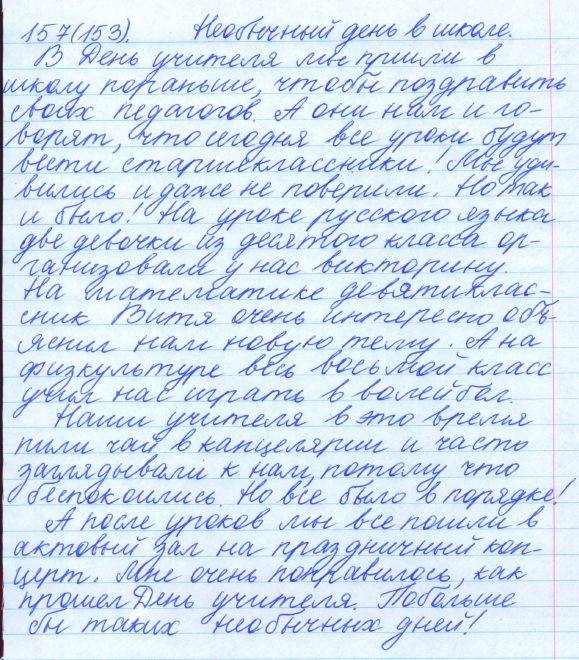 157(153). Необычный день в школе.
В День учителя мы пришли в
школу пораньше, чтобы поздравить
своих педагогов. А они нам и го-
ворят, что сегодня все уроки будут
вести старшеклассники! Мы уди-
вились и даже не поверили. Но так
и было! На уроке русского языка
две девочки из десятого класса ор-
ганизовали у нас викторину.
На математике девятиклас-
сник Витя очень интересно объ-
яснил нам новую тему. А на
физкультуре весь восьмой класс
учил нас играть в волейбол.
Наши учителя в это время
пили чай в канцелярии и часто
заглядывали к нам, потому что
беспокоились. Но всё было в порядке!
А после уроков мы все пошли в
актовый зал на праздничный кон-
церт. Мне очень понравилось, как
прошел День учителя. Побольше
бы таких необычных дней!